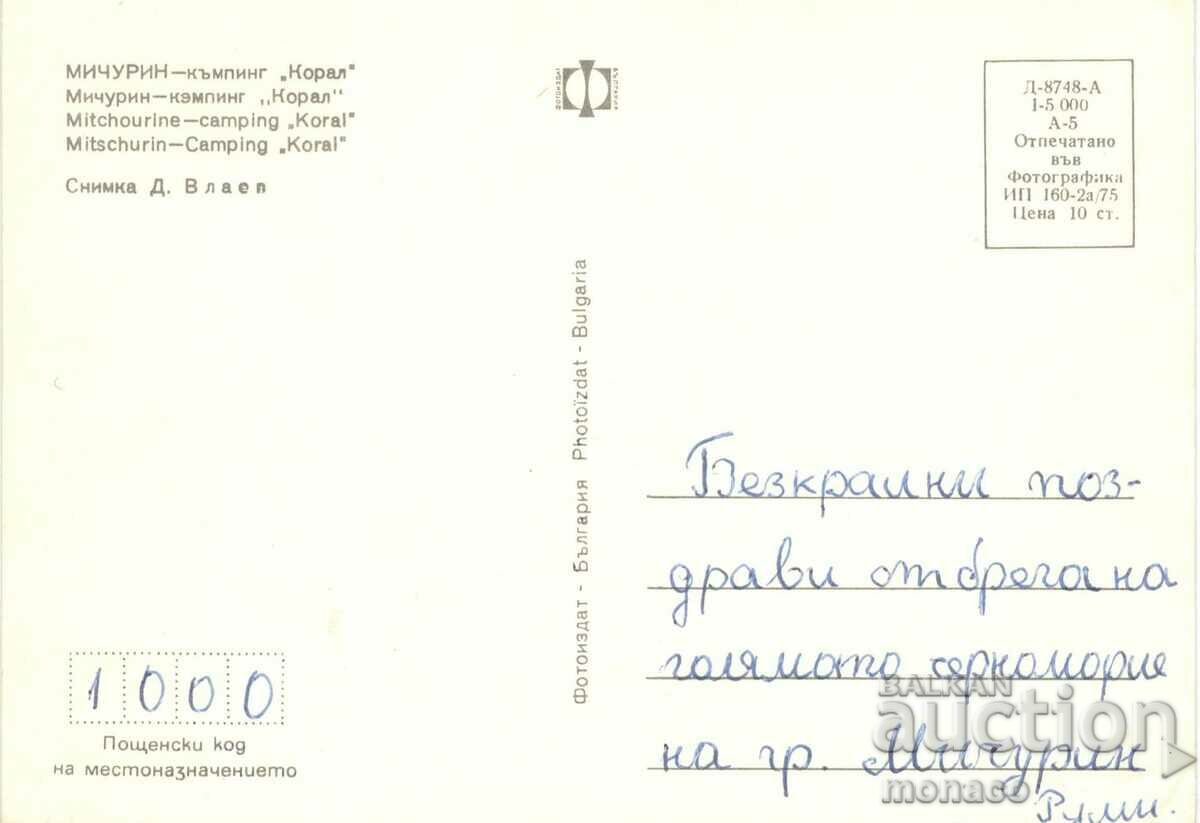 МИЧУРИН—къмпинг „Корал"
Мичурин—кэмпинг „Корал"
Mitchourine—camping „Koral"
Mitschurin—Camping „Koral"
Снимка Д. Влаев
ФОТОИЗДАТ
Д-8748-А
1-5 000
А-5
Отпечатано
във
Фотографика
ИП 160-2а/75
Цена 10 ст.
Фотоиздат - България Photoïzdat - Bulgaria
Безкрайни поз-
драви от брега на
голямото черноморие
на гр. Мичурин
Руми.
1000
Пощенски код
на местоназначението
BALKAN
auction
monaco